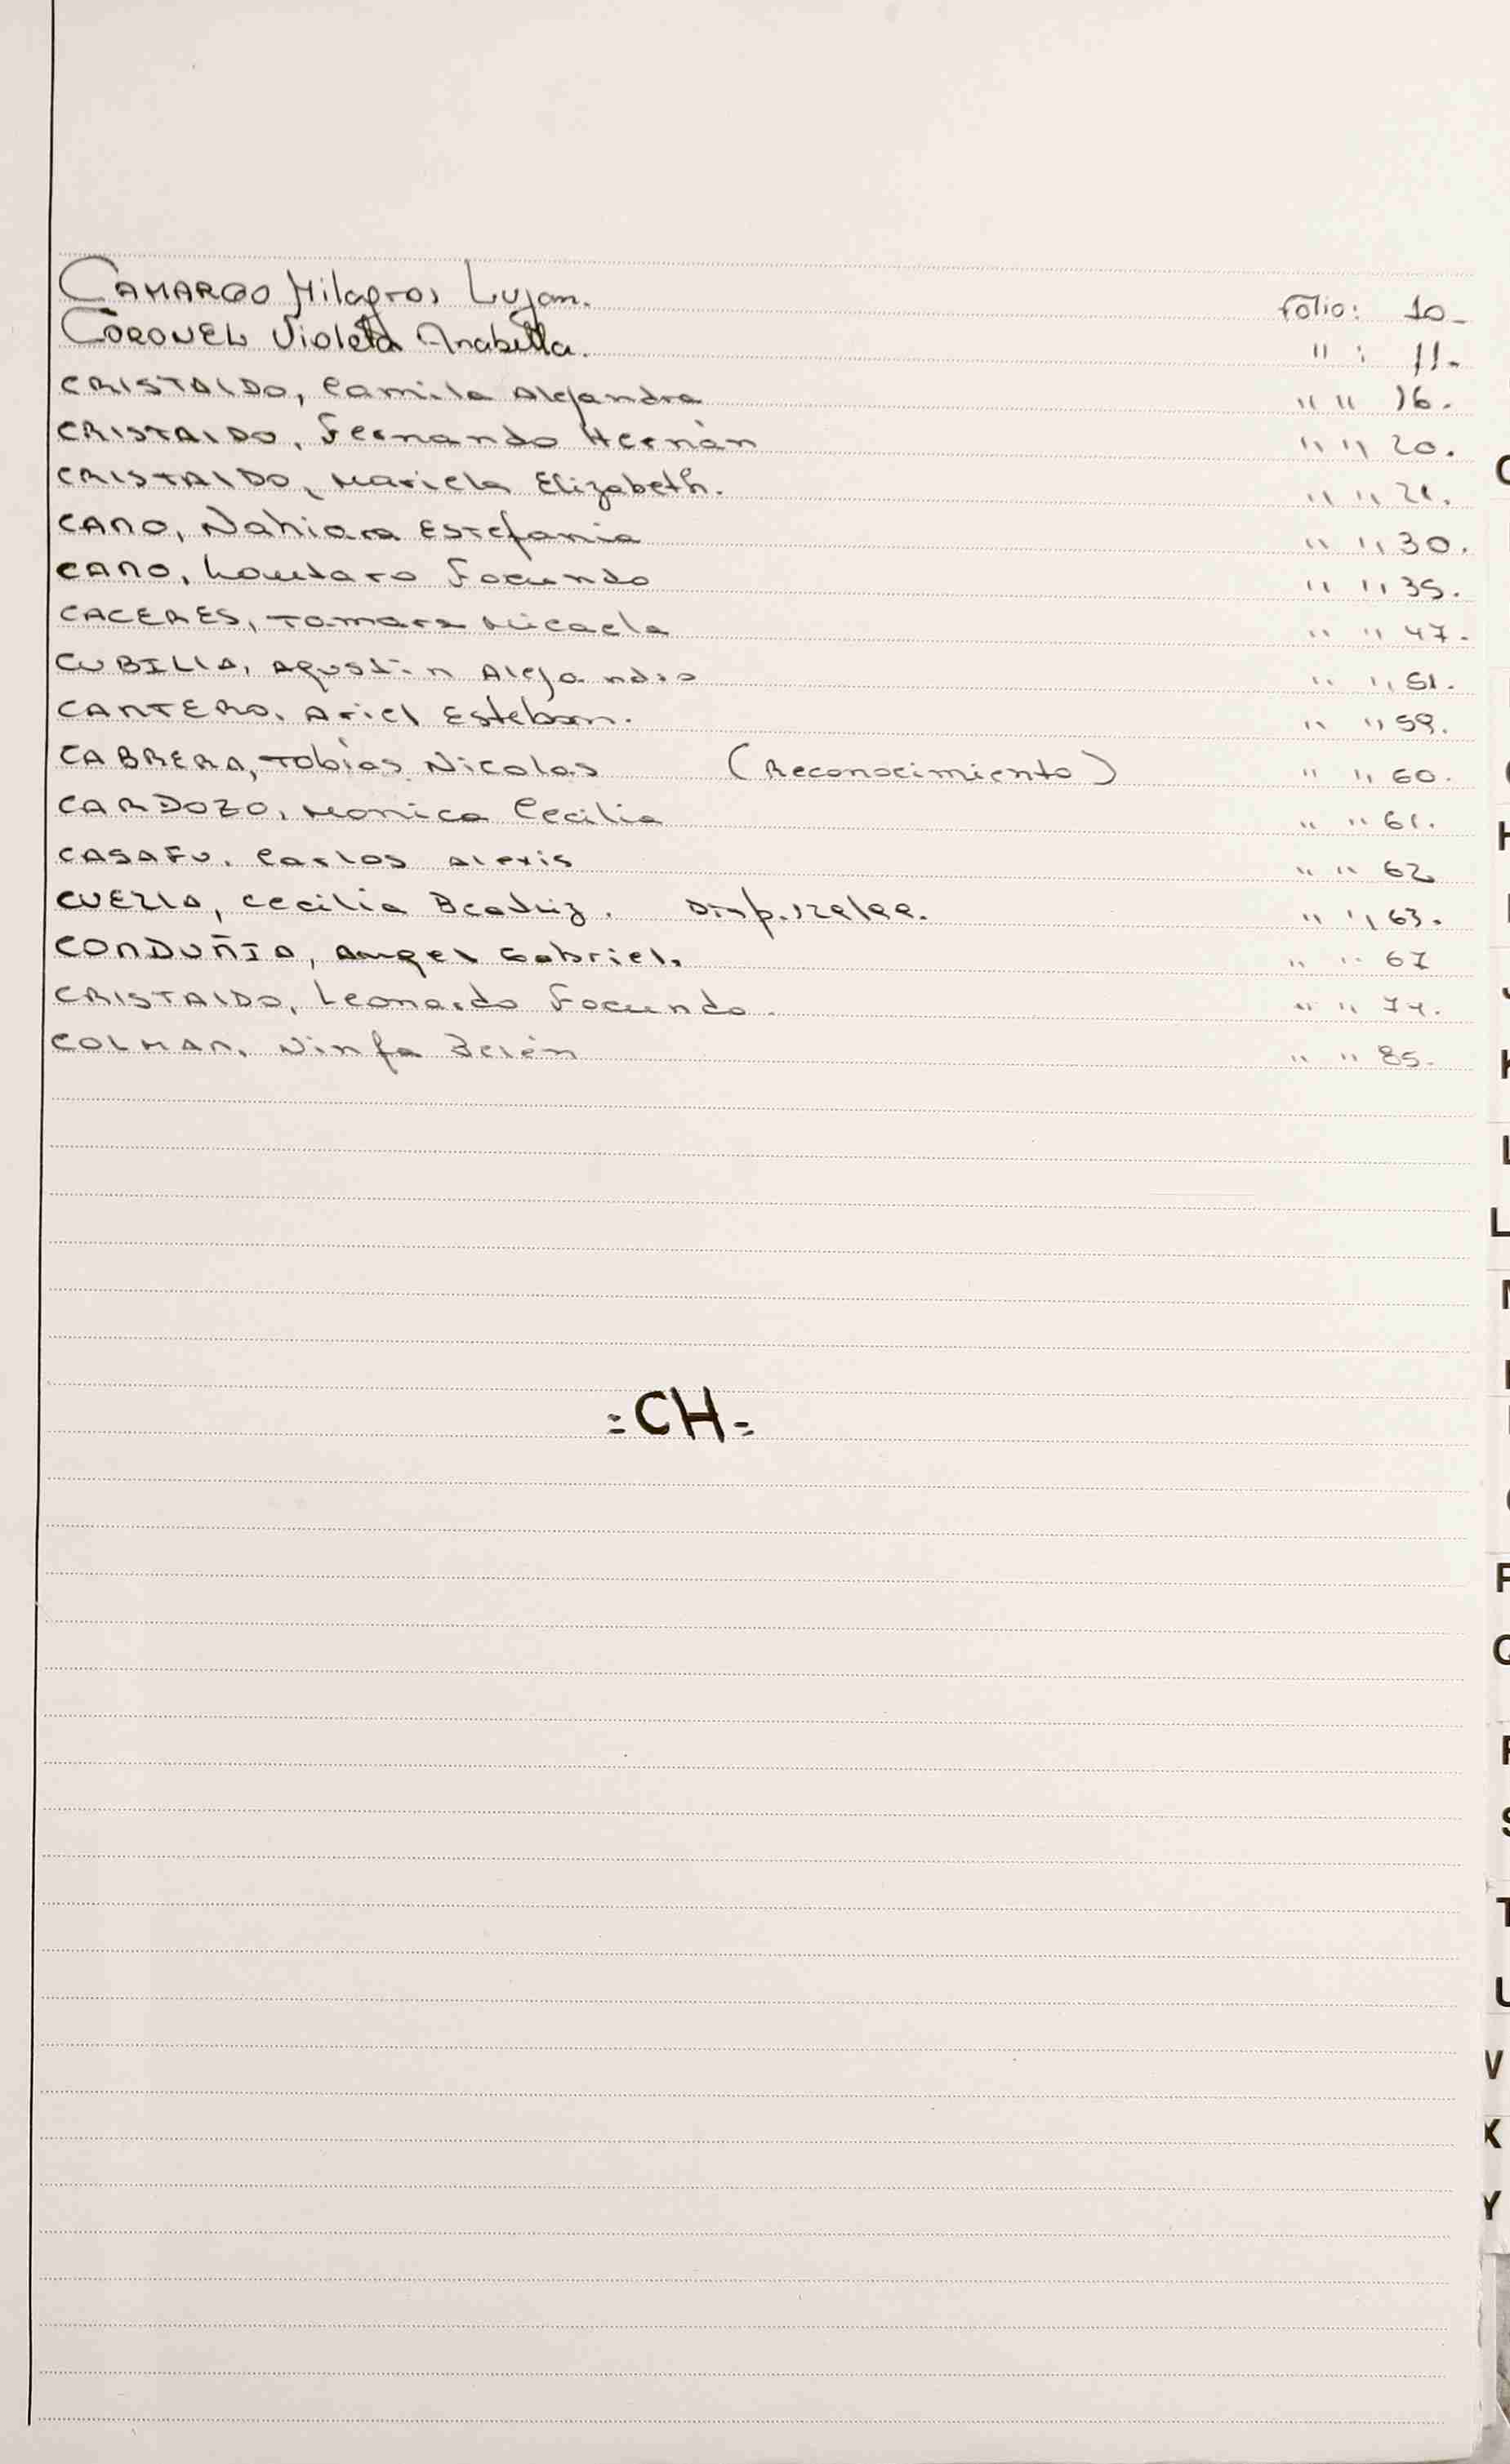 CAMARGO Milagros Lujan. Folio: 10-
CORONEL Violeta Anabella. " : 11-
CRISTALDO, Camila Alejandra " " 16.
CRISTALDO, Fernando Hernàn " " 20.
CRISTALDO, Mariela Elizabeth. " " 21.
CANO, Nahiara Estefania " " 30.
CANO, Lautaro Facundo " " 35.
CACERES, Tamara Micaela " " 47.
CUBILLA, Agustin Alejandro " " 51.
CANTERO, Ariel Esteban. " " 59.
CABRERA, Tobias Nicolas (Reconocimiento) " " 60.
CARDOZO, Monica Cecilia " " 61.
CASAFU, Carlos Alexis " " 62
CUELLA, Cecilia Beatriz. " " 63.
CONDUÑIA, Angel Gabriel. " " 67
CRISTALDO, Leonardo Facundo. " " 74.
COLMAN, Ninfa Belén " " 85.
=CH=
H
J
K
L
L
M
P
Q
R
S
T
U
V
X
Y